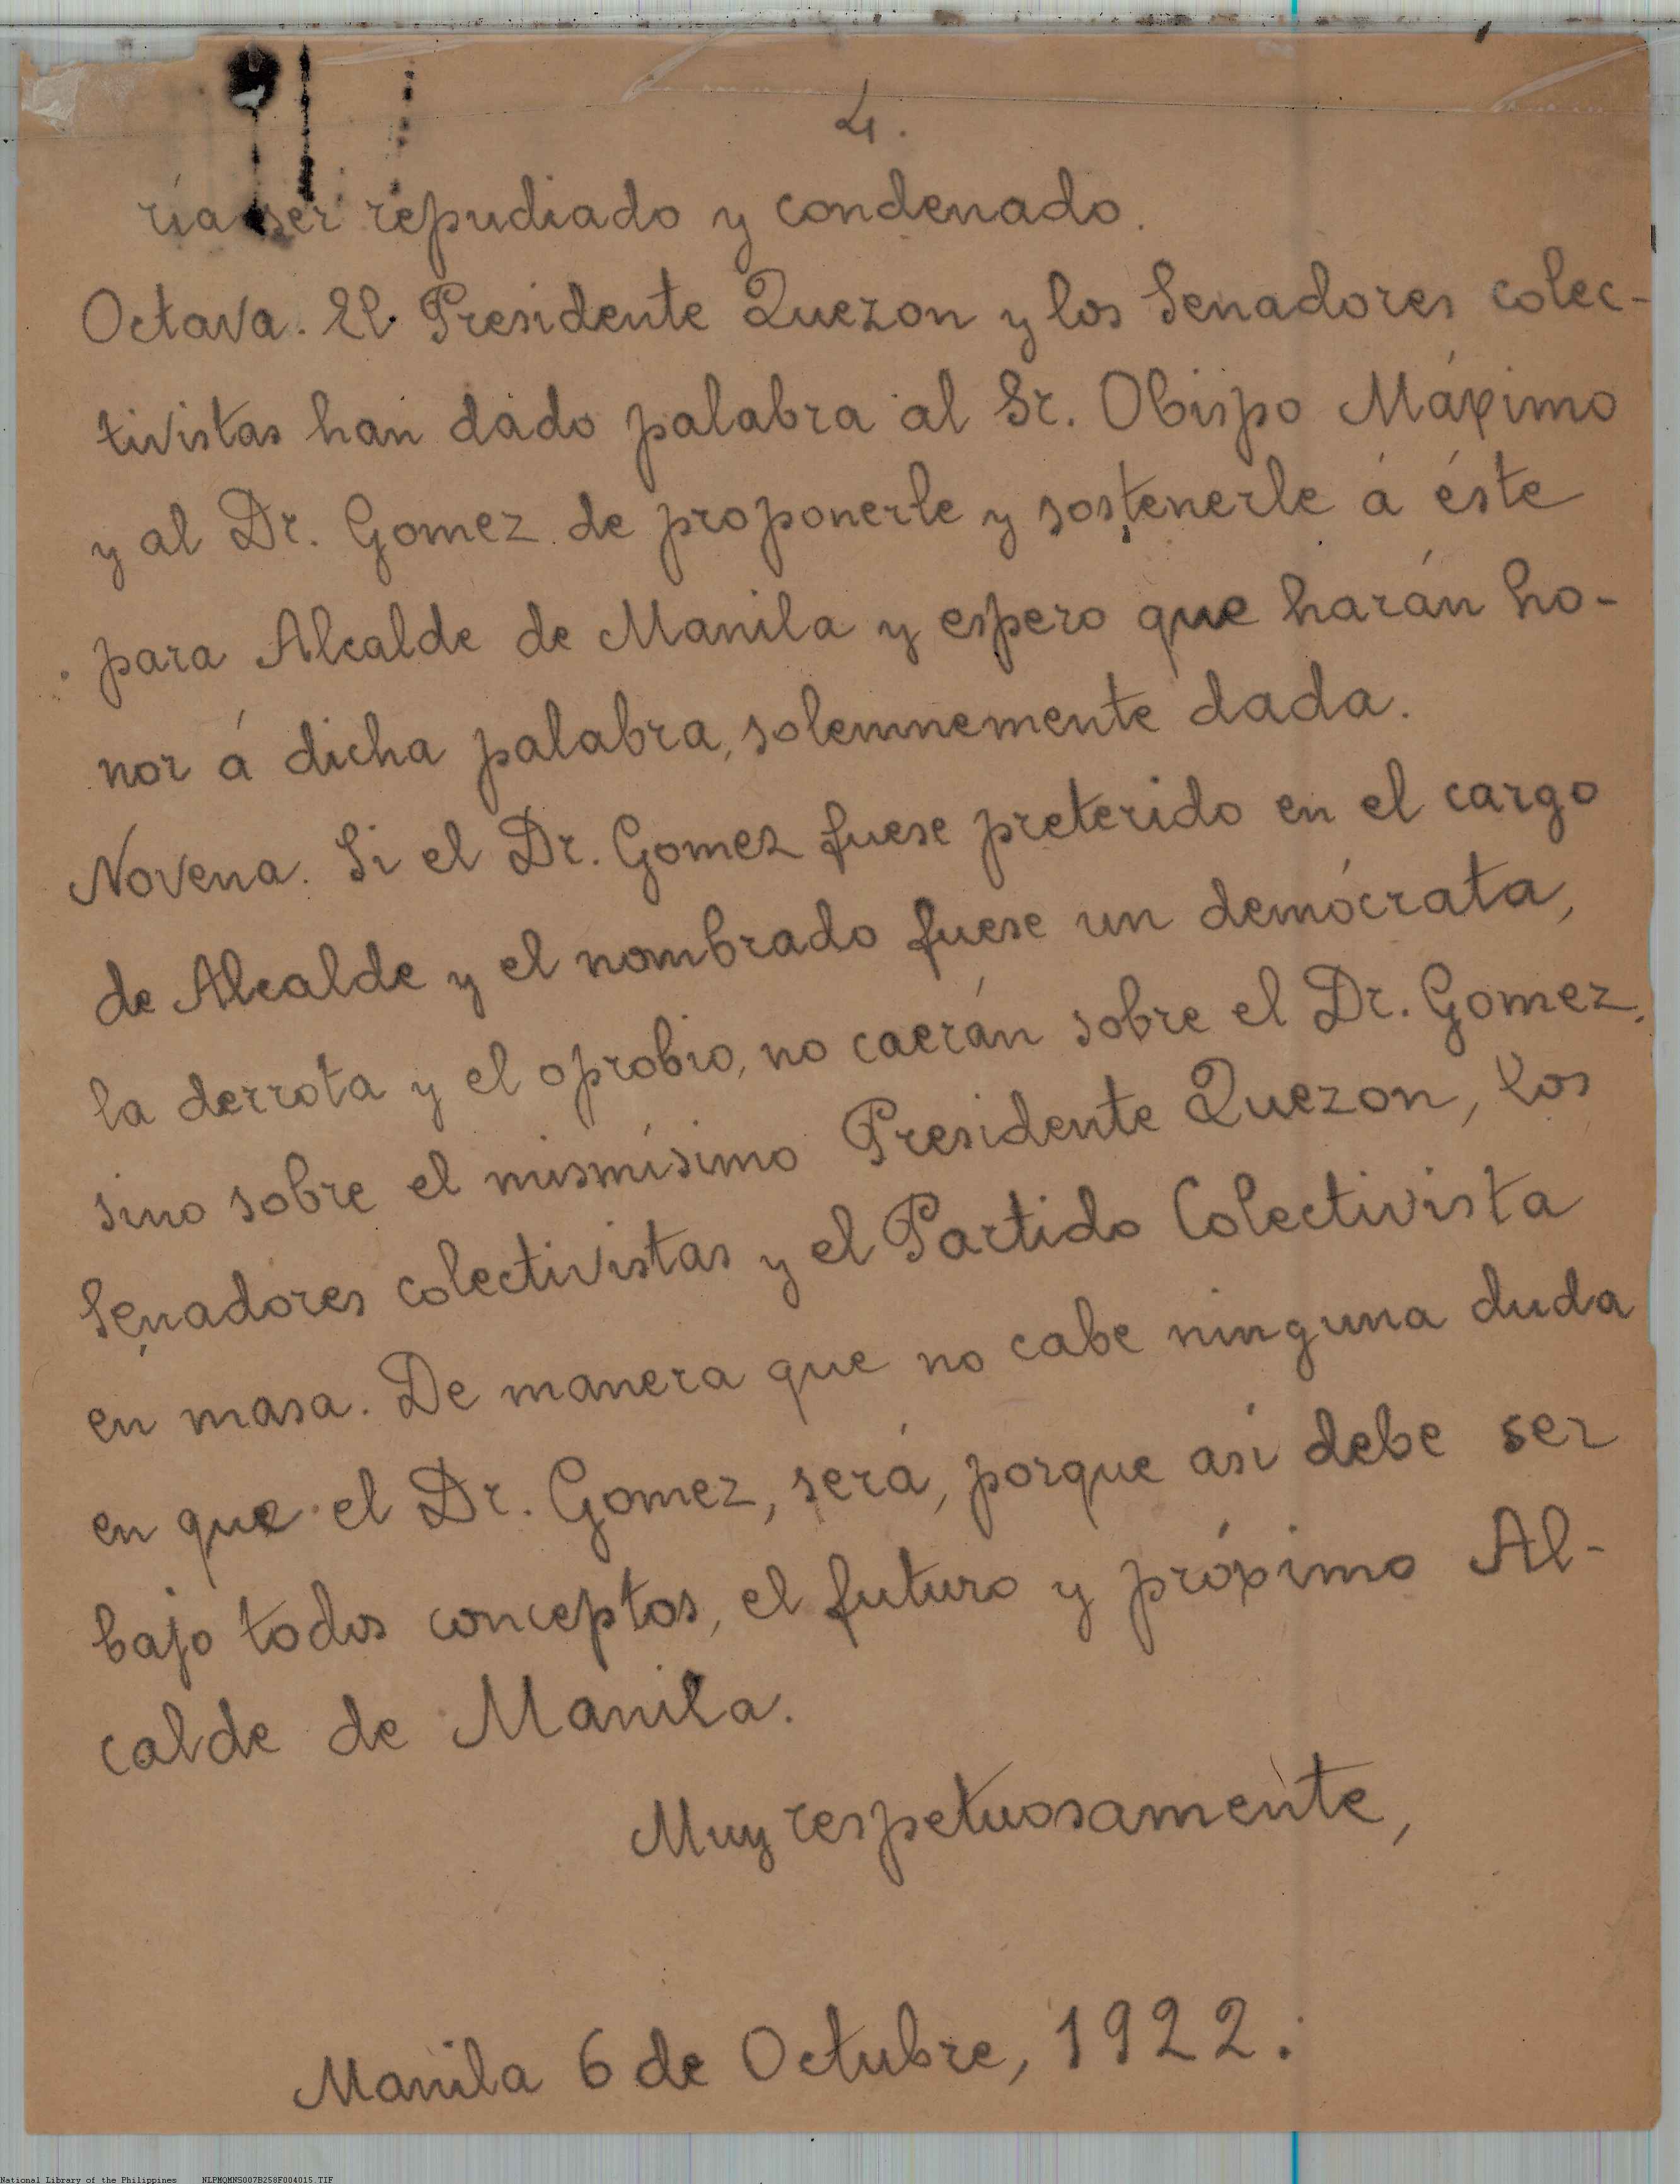 4.
ría ser repudiado y condenado.
Octava. El Presidente Quezon y los Senadores colec-
tivistas han dado palabra al Sr. Obispo Máximo
y al Dr. Gomez de proponerle y sostenerle á éste
para Alcalde de Manila y espero que harán ho-
nor á dicha palabra, solemnemente dada.
Novena. Si el Dr. Gomez fuese preterido en el cargo
de Alcalde y el nombrado fuese un demócrata,
la derrota y el oprobio, no caerán sobre el Dr. Gomez,
sino sobre el mismísimo Presidente Quezon, los
Senadores colectivistas y el Partido Colectivista
en masa. De manera que no cabe ninguna duda
en que el Dr. Gomez, será, porque así debe ser
bajo todos conceptos, el futuro y próximo Al-
calde de Manila.
Muy respetuosamente,
Manila 6 de Octubre, 1922.
National Library of the Philippines NLPMQMNS007B258F004015.TIF